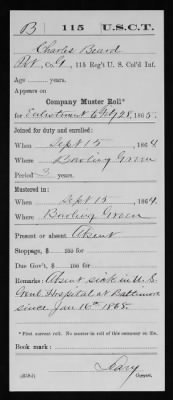 B 115 U.S.C.T.
Charles Beard
Pvt, Co. G, 115 Reg't U. S. Col'd Inf.
Age years.
Appears on
Company Muster Roll*
for Enlistment to Feby 28, 1865.
Joined for duty and enrolled:
When Sept 15, 1864.
Where Bowling Green
Period 3 years.
Mustered in:
When Sept 15, 1864.
Where Bowling Green
Present or absent Absent
Stoppage, $ 100 for
Due Gov't, $ 100 for
Remarks: Absent sick in U. S.
Genl. Hospital at Baltimore
since Jan 16th 1865.
*First current roll. No muster-in roll of this company on file.
Book mark:
Copyist.